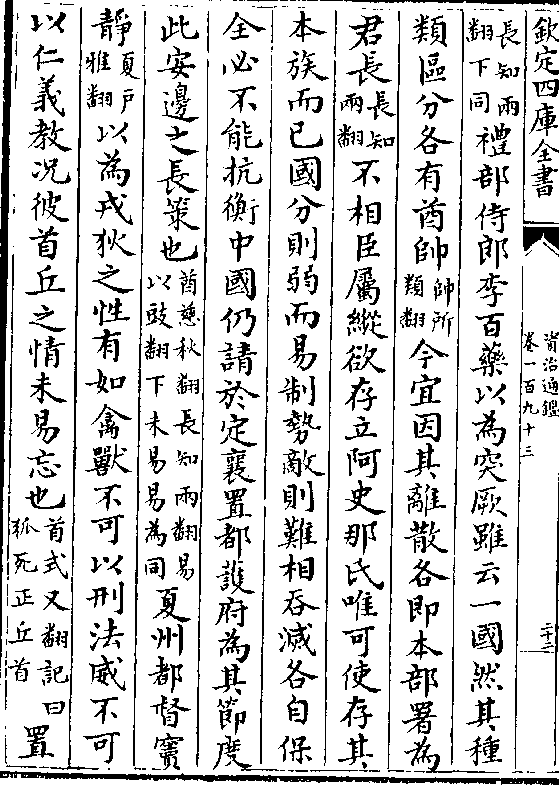 欽定四庫全書
資治通鑑
卷一百九十三
長知兩翻下同禮部侍郎李百藥以為突厥雖云一國然其種
類區分各有酋帥帥所類翻今宜因其離散各即本部署為
君長長知兩翻不相臣屬縱欲存立阿史那氏唯可使存其
本族而已國分則弱而易制勢敵則難相吞滅各自保
全必不能抗衡中國仍請於定襄置都護府為其節度
此安邊之長策也酋慈秋翻長知兩翻易以豉翻下未易易為同夏州都督竇
靜夏戶雅翻以為戎狄之性有如禽獸不可以刑法威不可
以仁義教況彼首丘之情未易忘也首式又翻記曰狐死正丘首置